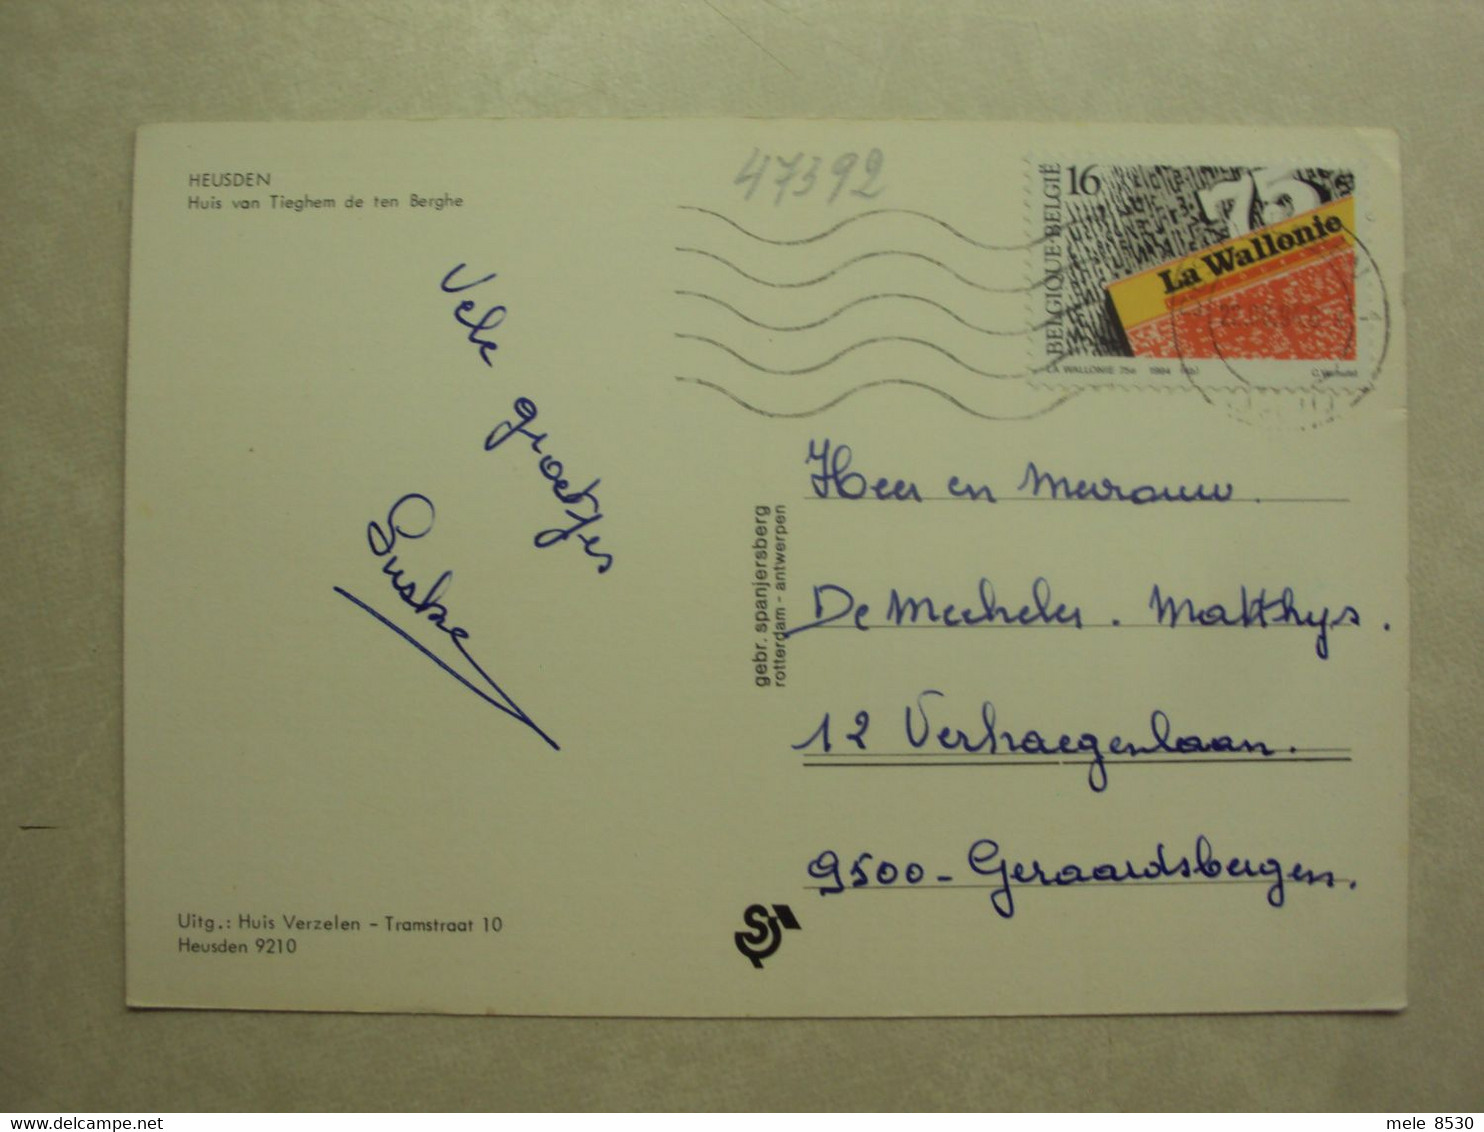 HEUSDEN
Huis van Tieghem de ten Berghe
47392
BELGIQUE·BELGIË
16
75
La Wallonie
LA WALLONIE 75e 1994
Vele
groetjes
Suske
gebr. spanjersberg
rotterdam - antwerpen
Heer en Mevrouw.
De Mecheler. Matthys.
12 Verhaegenlaan.
9500 - Geraardsbergen.
Uitg.: Huis Verzelen - Tramstraat 10
Heusden 9210
mele 8530